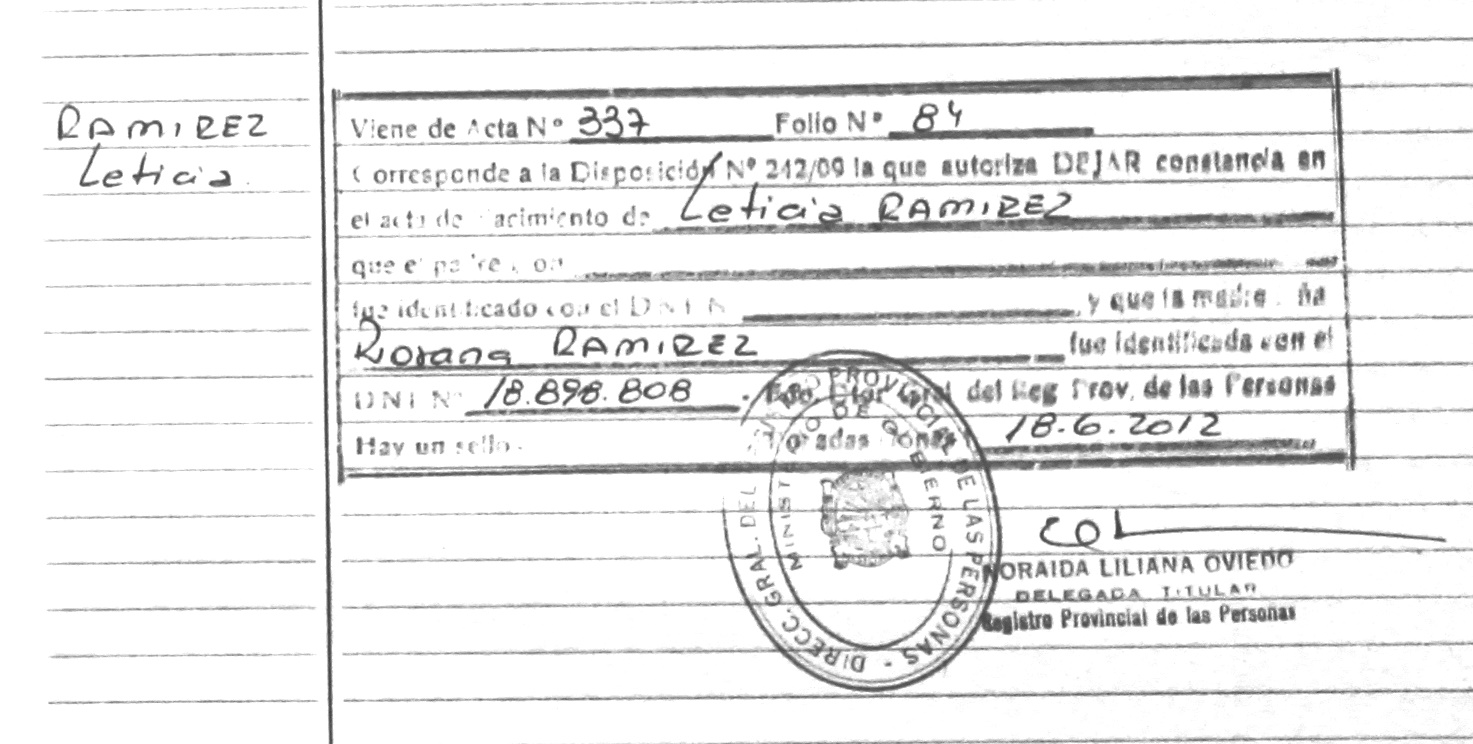 RAMIREZ
Leticia
Viene de Acta Nº 337 Folio Nº 84
Corresponde a la Disposición Nº 242/09 la que autoriza DEJAR constancia en
el acta de nacimiento de Leticia RAMIREZ
que el padre Don
fue identificado con el D N I N y que la madre ña
Rosana RAMIREZ fue identificada con el
DNI Nº 18.898.808 Gral del Reg Prov. de las Personas
Hay un sello. Posadas 18.6.2012
DIRECC. GRAL. DEL PROVINCIAL DE LAS PERSONAS -
MINIST DE GOBIERNO
NORAIDA LILIANA OVIEDO
DELEGADA TITULAR
Registro Provincial de las Personas